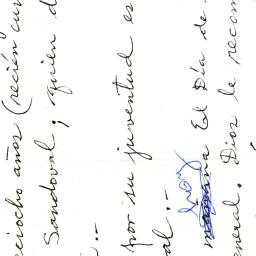 dieciocho años (recién cum
Sandoval; quien d
a.-
por su juventud es
al.-
Hoy
mañana El Día de
eneral. Dios le recom